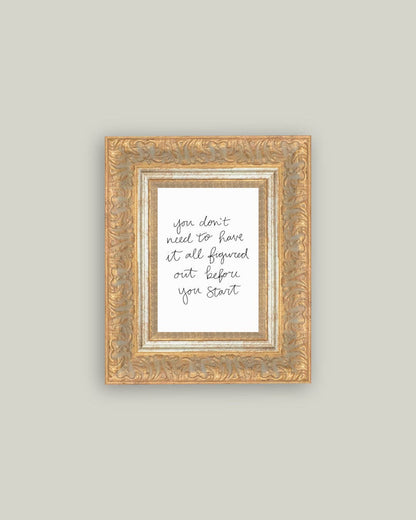 you don't
need to have
it all figured
out before
you start